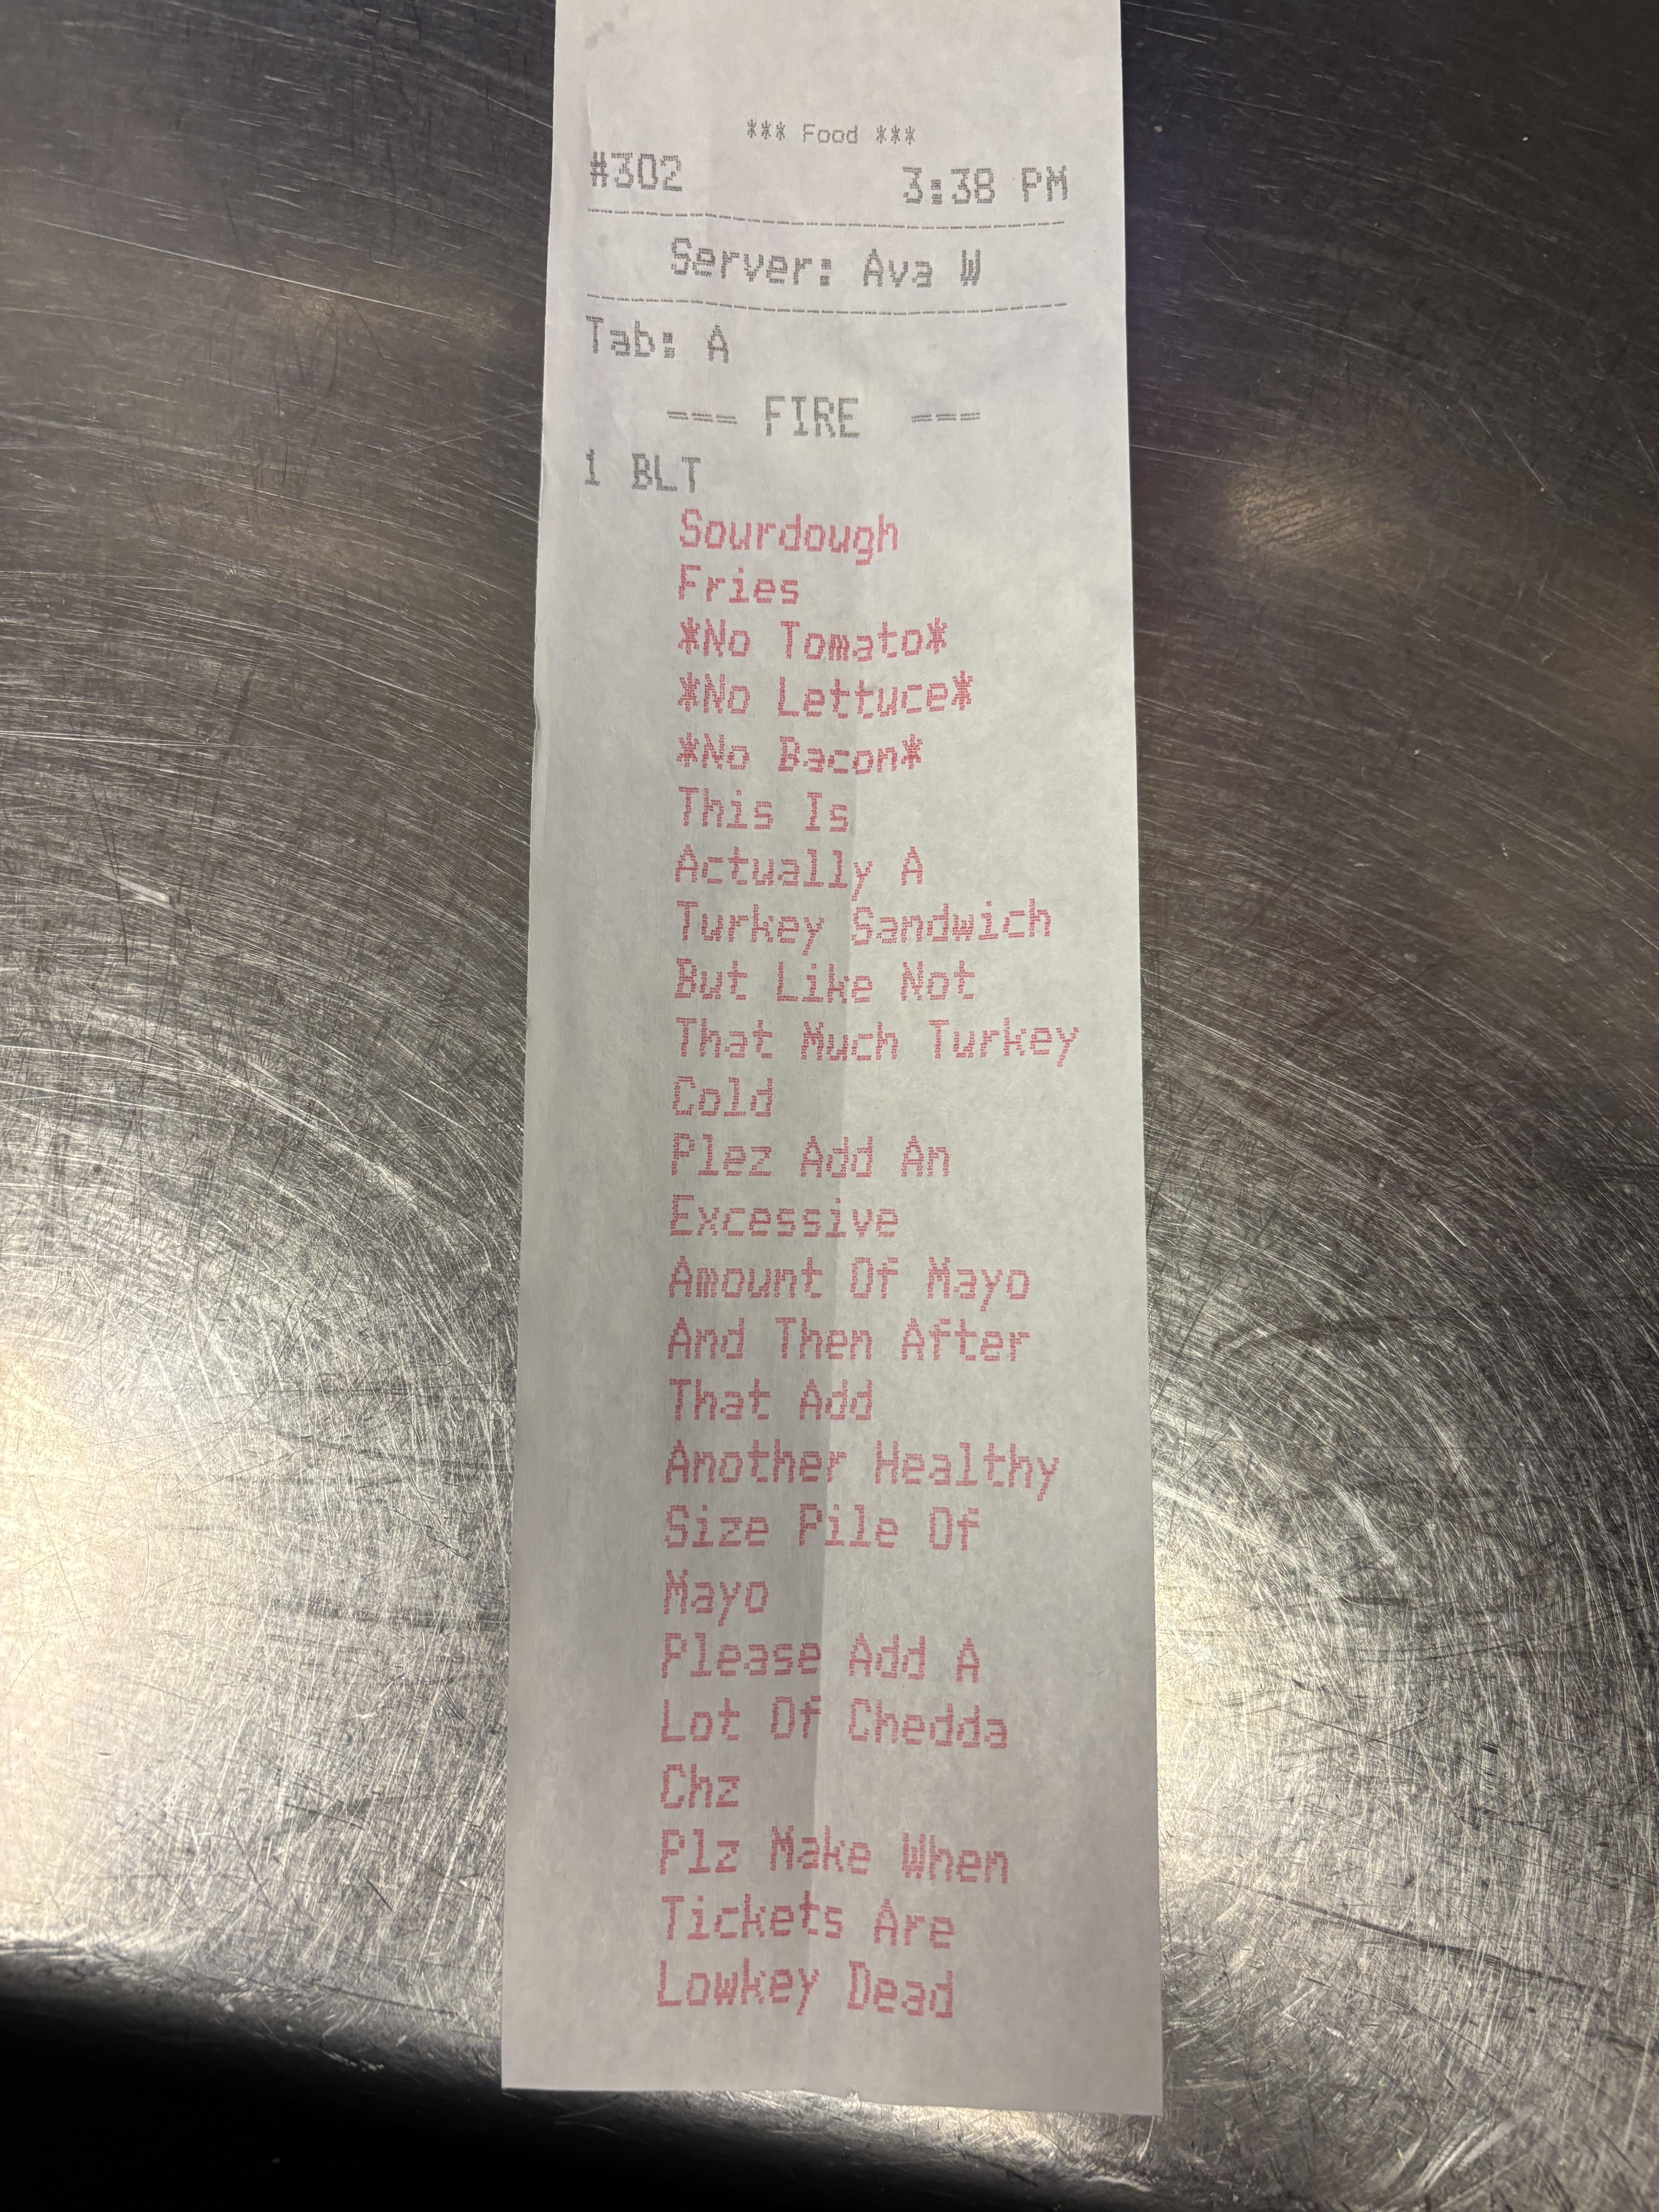 *** Food ***
#302 3:38 PM
Server: Ava W
Tab: A
--- FIRE ---
1 BLT
Sourdough
Fries
*No Tomato*
*No Lettuce*
*No Bacon*
This Is
Actually A
Turkey Sandwich
But Like Not
That Much Turkey
Cold
Plez Add An
Excessive
Amount Of Mayo
And Then After
That Add
Another Healthy
Size Pile Of
Mayo
Please Add A
Lot Of Chedda
Chz
Plz Make When
Tickets Are
Lowkey Dead